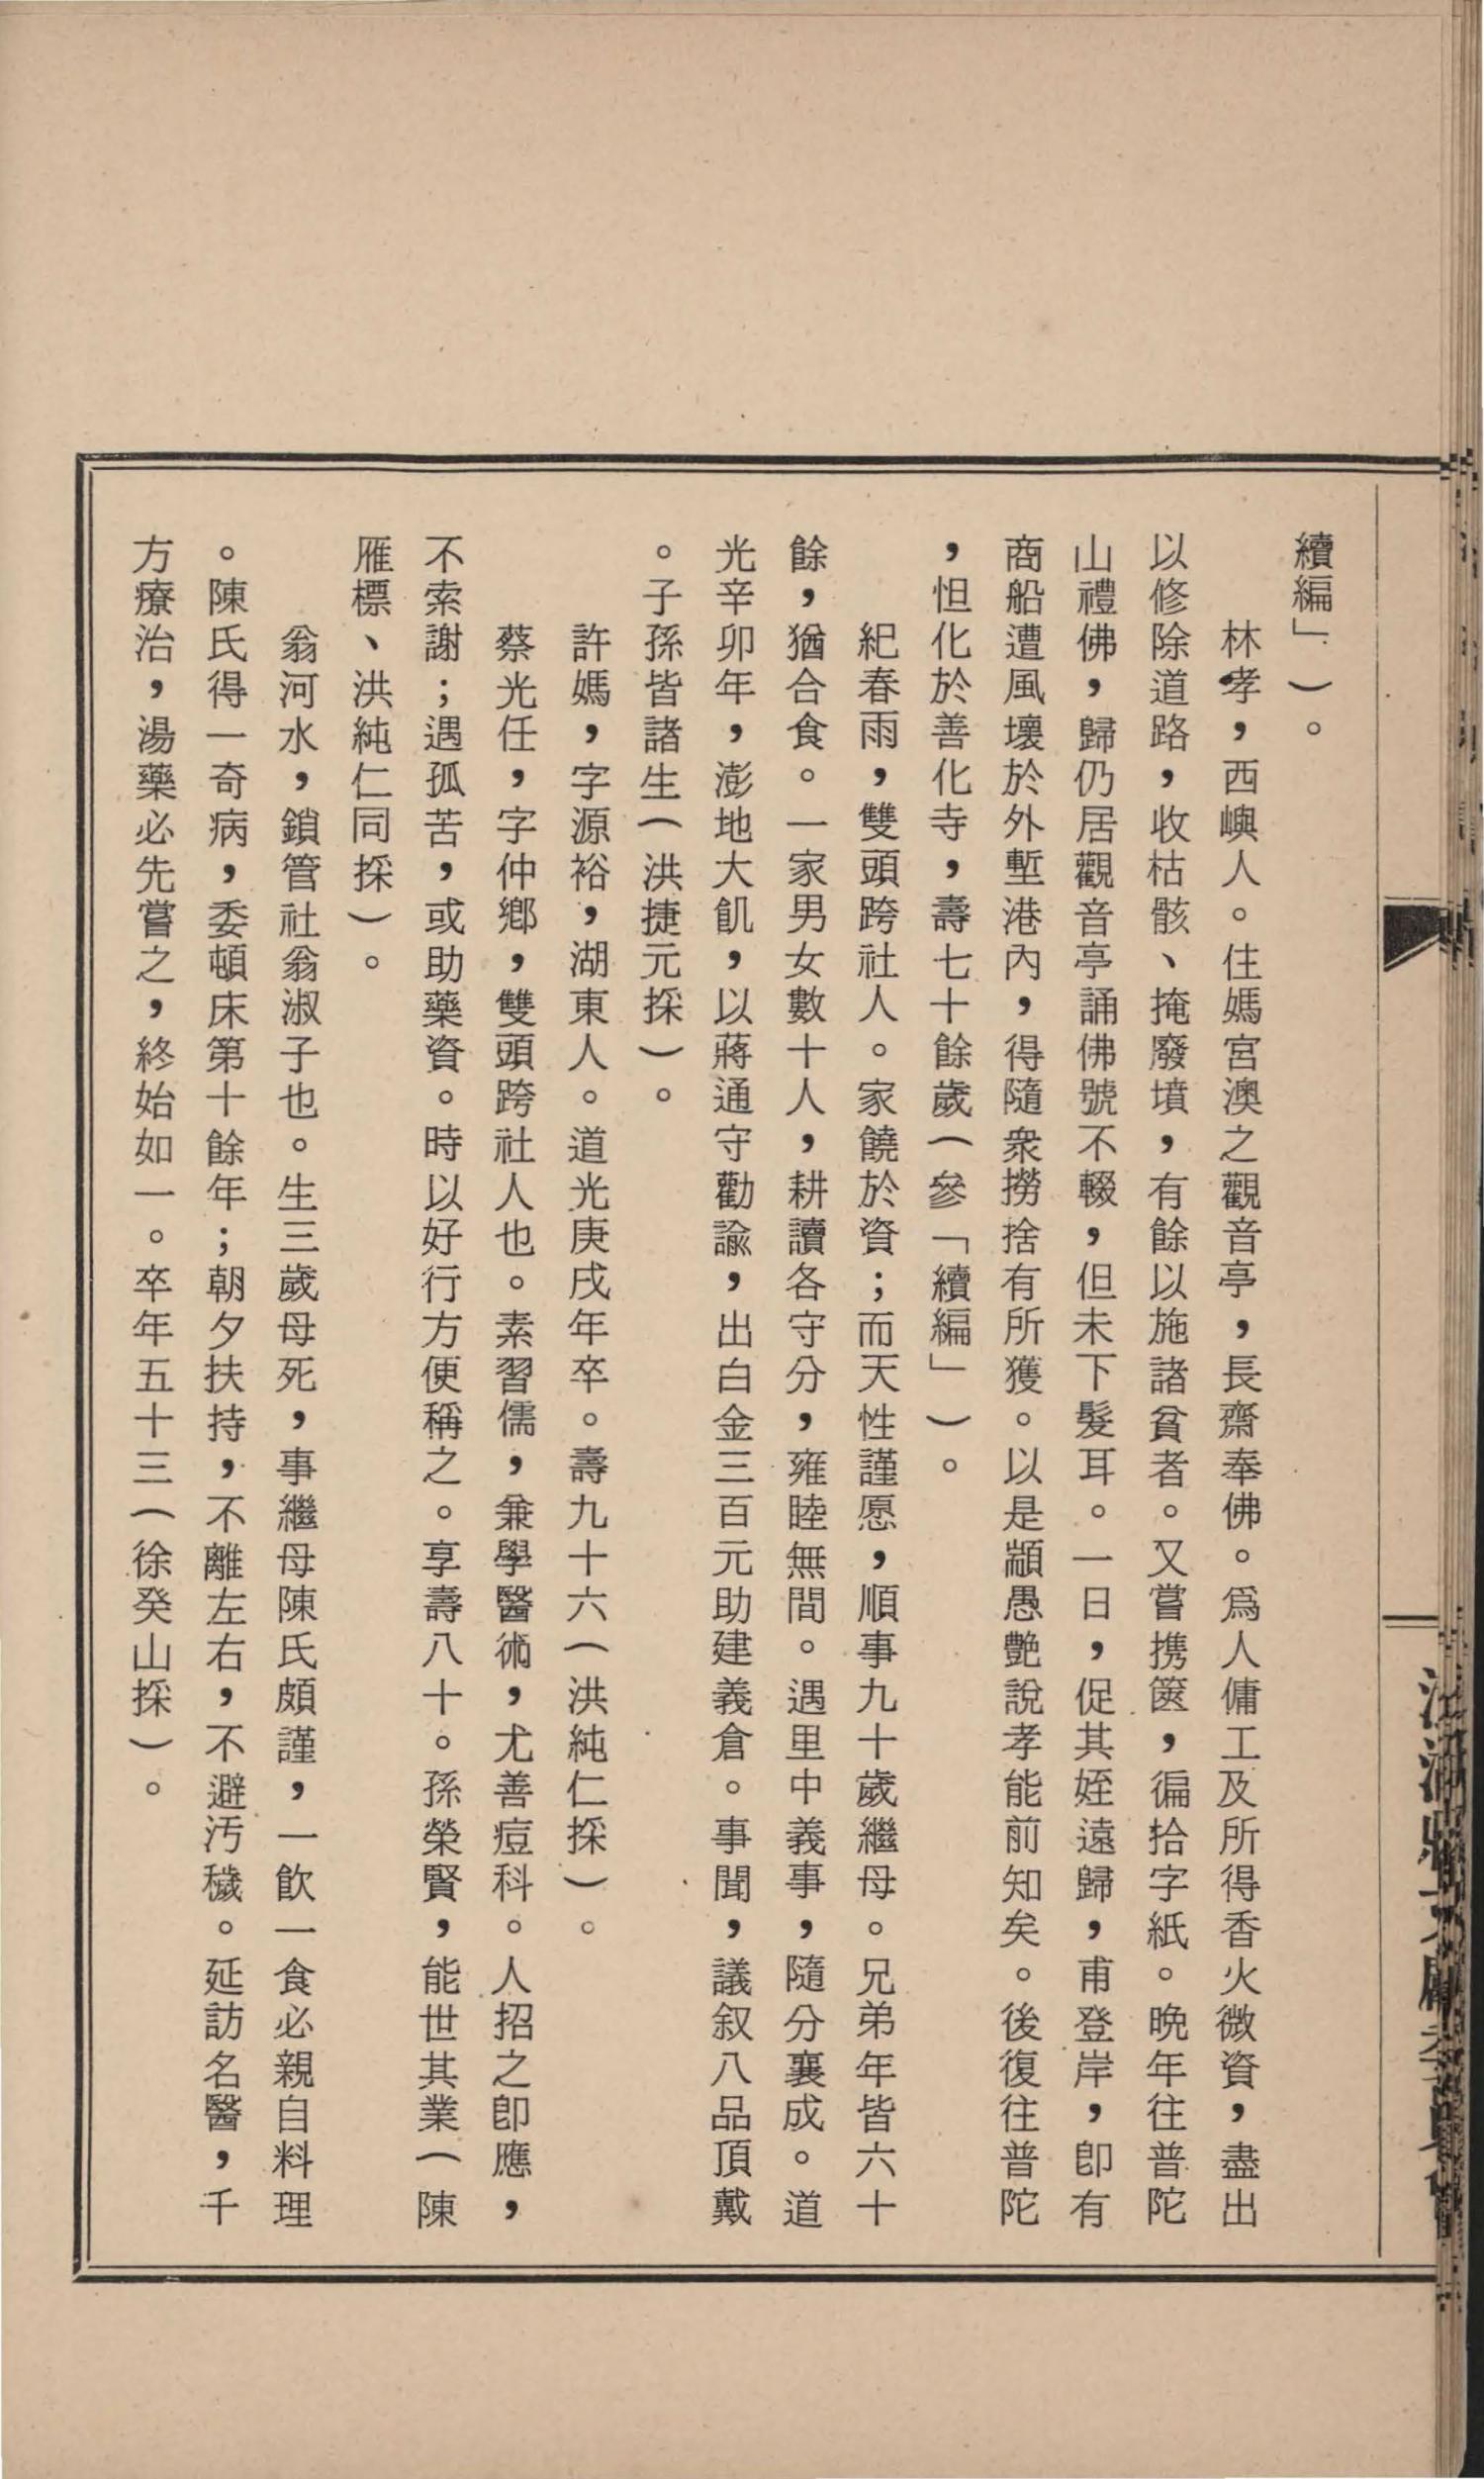 續編」）。
林孝，西嶼人。住媽宮澳之觀音亭，長齋奉佛。爲人傭工及所得香火微資，盡出
以修除道路，收枯骸、掩廢墳，有餘以施諸貧者。又嘗携篋，徧拾字紙。晚年往普陀
山禮佛，歸仍居觀音亭誦佛號不輟，但未下髮耳。一日，促其姪遠歸，甫登岸，卽有
商船遭風壞於外塹港內，得隨衆撈捨有所獲。以是顓愚艷說孝能前知矣。後復往普陀
，怛化於善化寺，壽七十餘歲（參「續編」）。
紀春雨，雙頭跨社人。家饒於資；而天性謹愿，順事九十歲繼母。兄弟年皆六十
餘，猶合食。一家男女數十人，耕讀各守分，雍睦無間。遇里中義事，隨分襄成。道
光辛卯年，澎地大飢，以蔣通守勸諭，出白金三百元助建義倉。事聞，議叙八品頂戴
。子孫皆諸生（洪捷元採）。
許媽，字源裕，湖東人。道光庚戌年卒。壽九十六（洪純仁採）。
蔡光任，字仲鄉，雙頭跨社人也。素習儒，兼學醫術，尤善痘科。人招之卽應，
不索謝；遇孤苦，或助藥資。時以好行方便稱之。享壽八十。孫榮賢，能世其業（陳
雁標、洪純仁同採）。
翁河水，鎖管社翁淑子也。生三歲母死，事繼母陳氏頗謹，一飮一食必親自料理
。陳氏得一奇病，委頓床第十餘年；朝夕扶持，不離左右，不避汚穢。延訪名醫，千
方療治，湯藥必先嘗之，終始如一。卒年五十三（徐癸山採）。